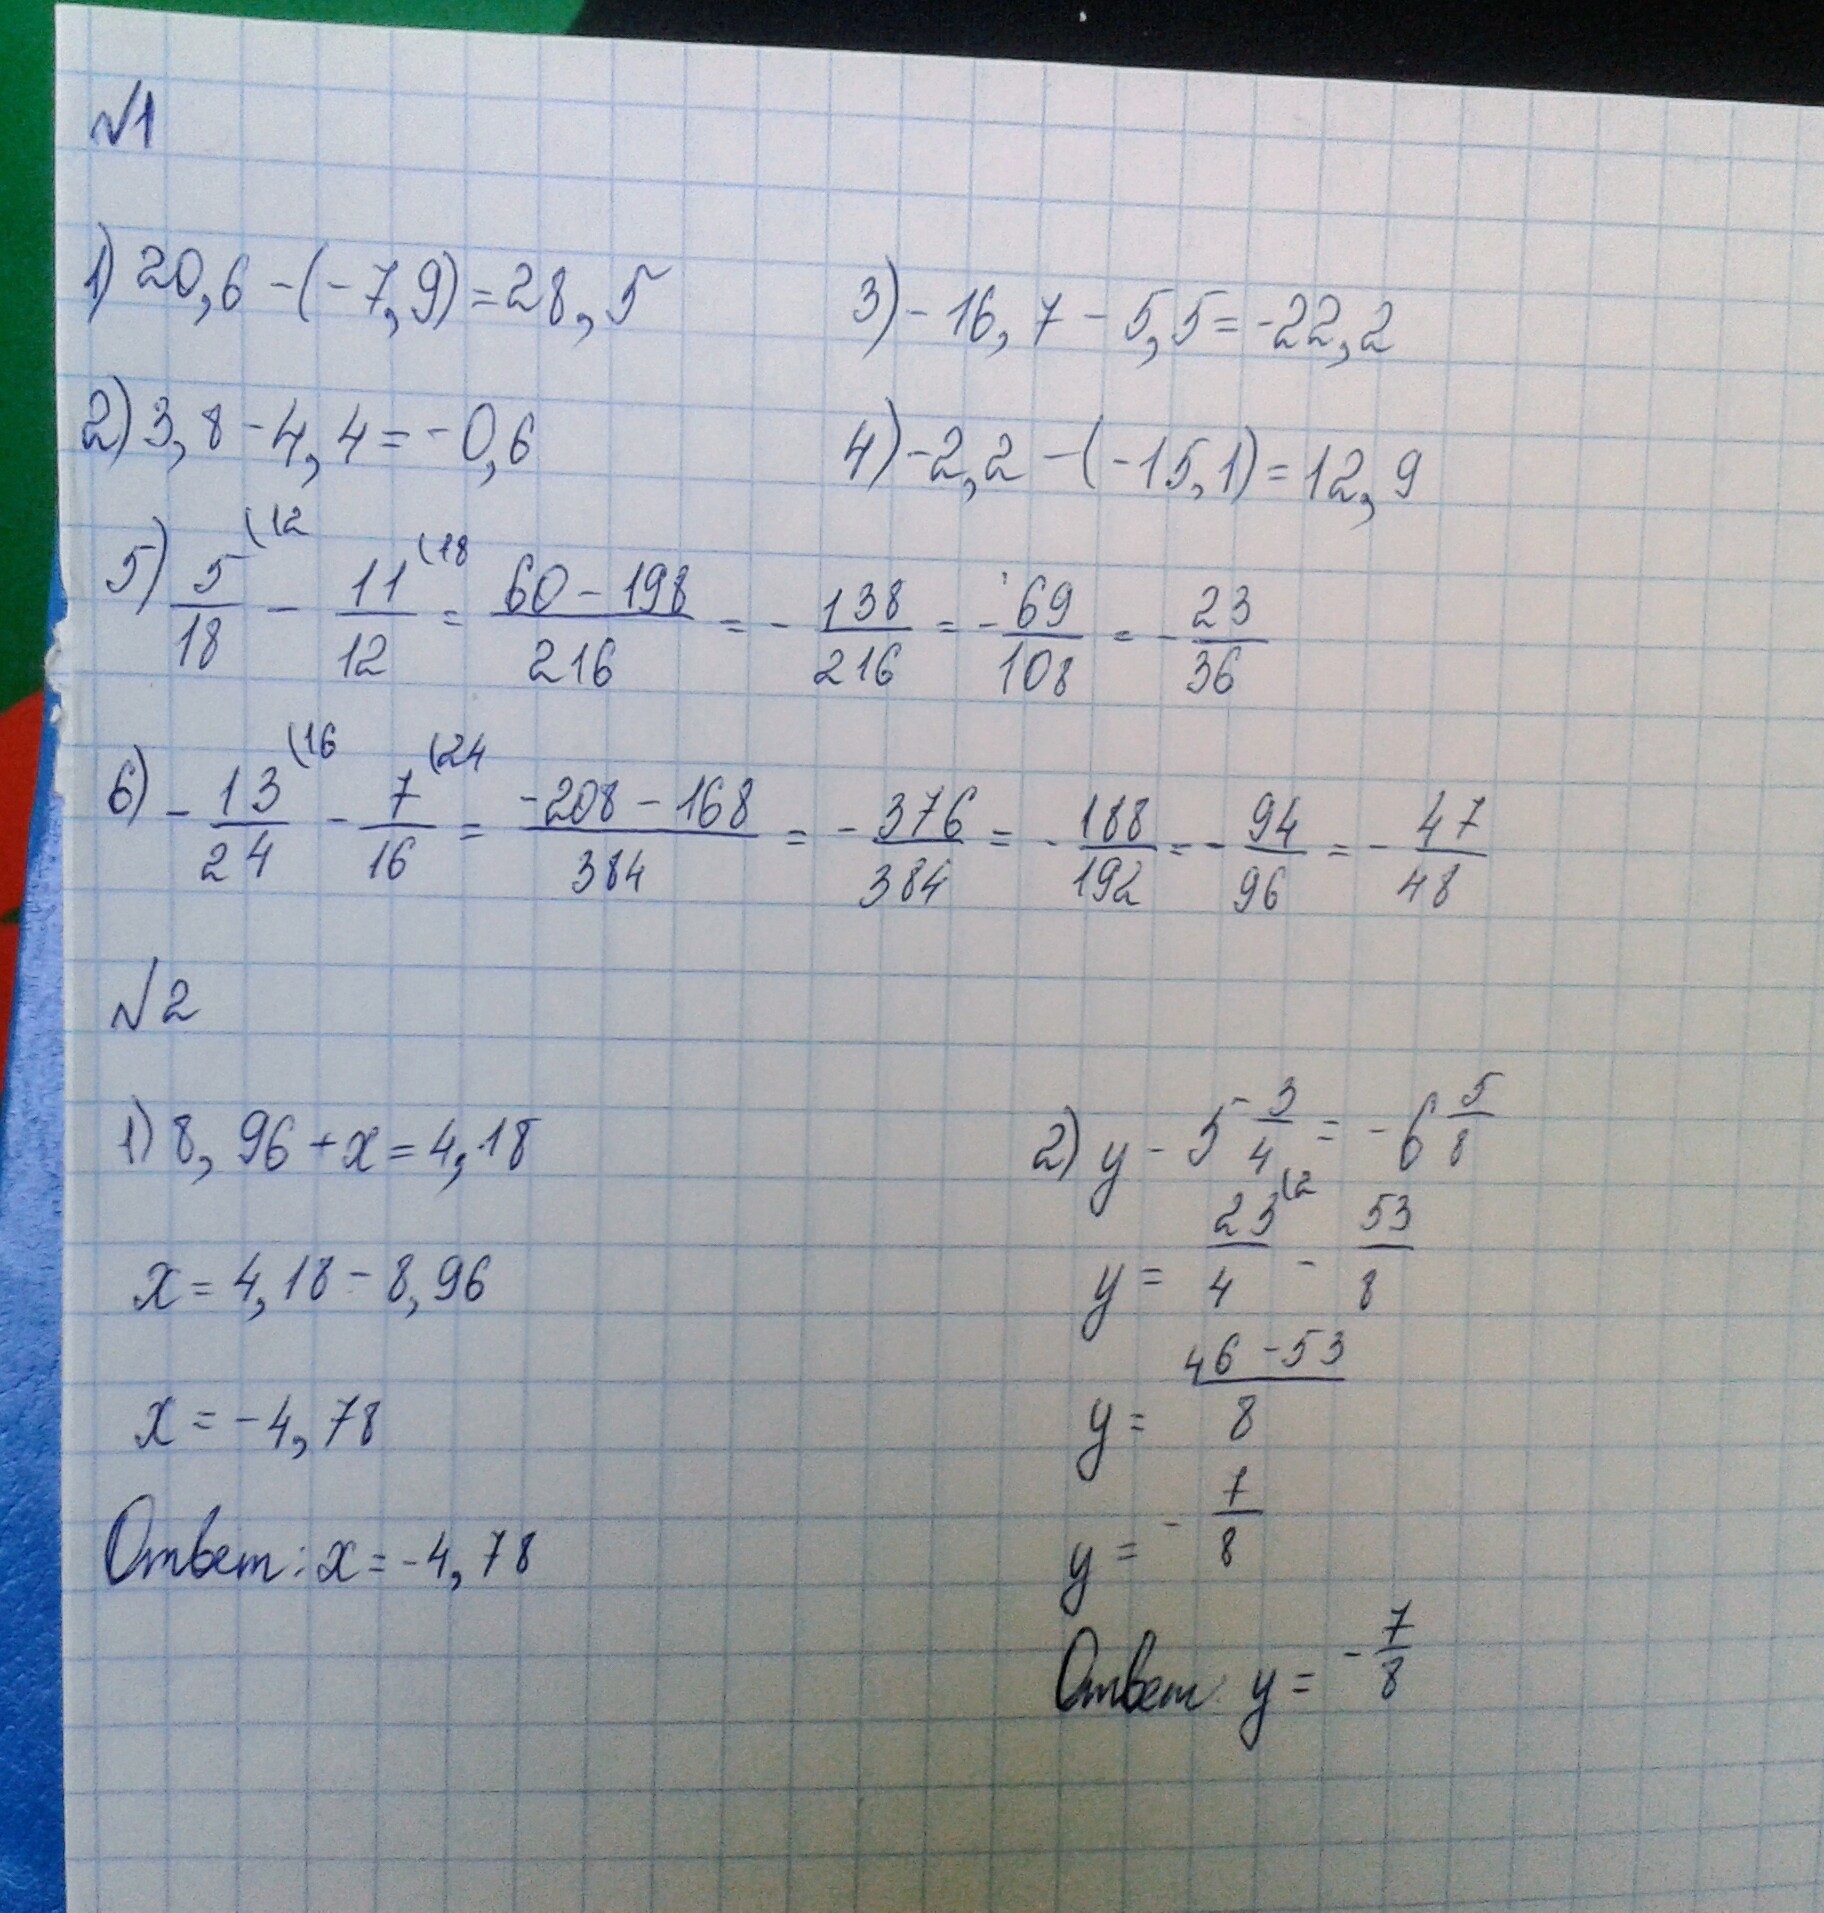 №1
1) 20,6 - (-7,9) = 28,5
3) -16,7 - 5,5 = -22,2
2) 3,8 - 4,4 = -0,6
4) -2,2 - (-15,1) = 12,9
5) 5/18 (12 - 11/12 (18 = (60 - 198)/216 = - 138/216 = - 69/108 = - 23/36
6) - 13/24 (16 - 7/16 (24 = (-208 - 168)/384 = - 376/384 = - 188/192 = - 94/96 = - 47/48
№2
1) 8,96 + x = 4,18
x = 4,18 - 8,96
x = -4,78
Ответ: x = -4,78
2) y - 5 3/4 = -6 5/8
y = 23/4 (2 - 53/8
y = (46 - 53)/8
y = - 7/8
Ответ: y = - 7/8